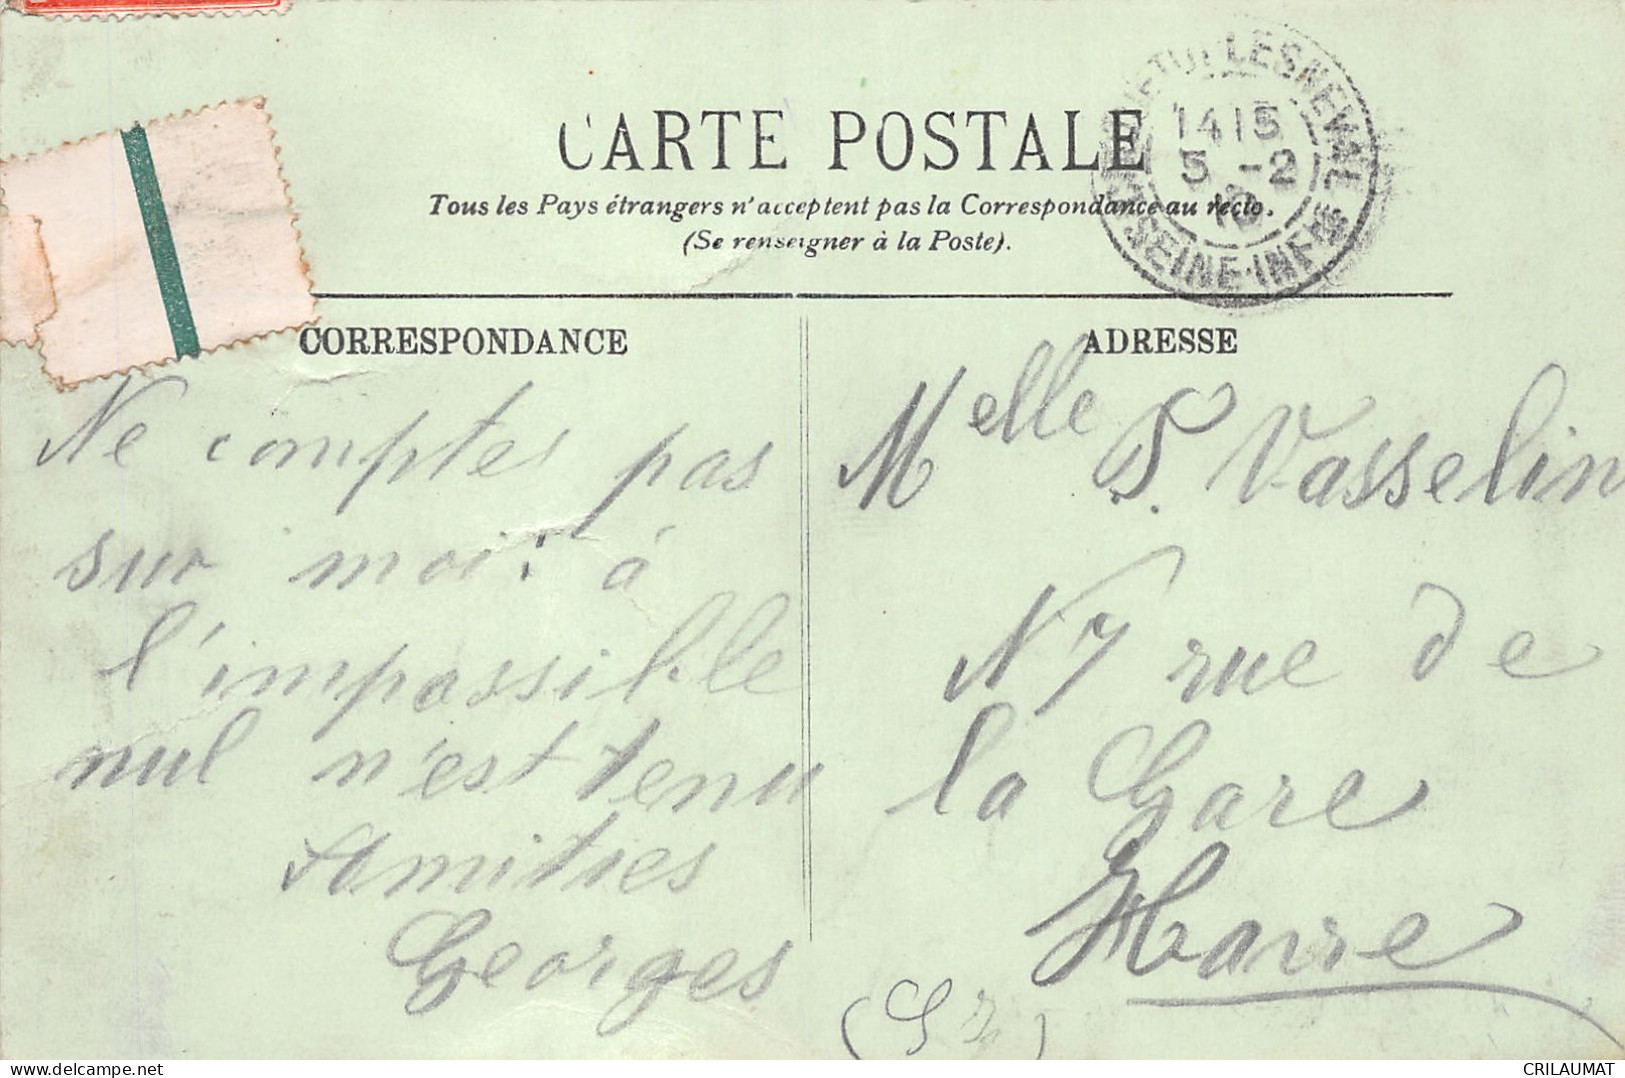 CARTE POSTALE
Tous les Pays étrangers n'acceptent pas la Correspondance au recto.
(Se renseigner à la Poste).
14 15
5 -2
SEINE-INFRE
CORRESPONDANCE
Ne comptes pas
sur moi. à
l'impossible
nul n'est tenu
Amities
Georges
ADRESSE
Melle S. Vasselin
N 7 rue de
la Gare
CRILAUMAT